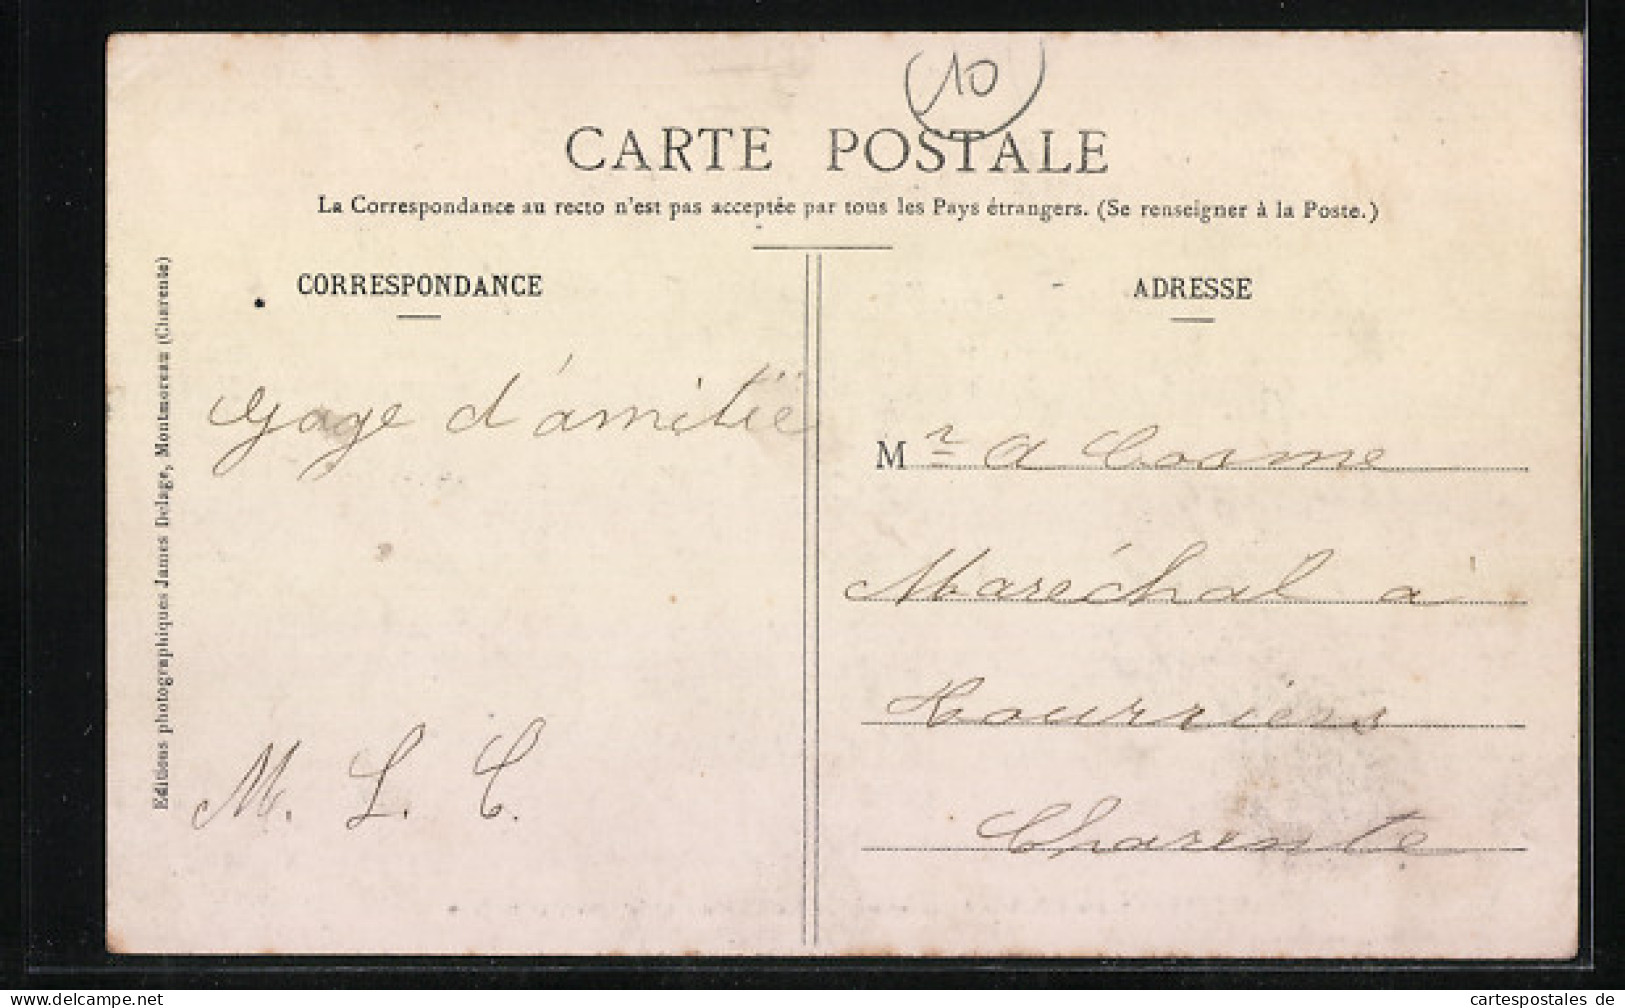 10
CARTE POSTALE
La Correspondance au recto n'est pas acceptée par tous les Pays étrangers. (Se renseigner à la Poste.)
CORRESPONDANCE
ADRESSE
Editions photographiques James Delage, Montmoreau (Charente)
Gage d'amitié
M. L. C.
Mr A Cosme
Maréchal à
Tourriers
Charente
www.delcampe.net
cartespostales de